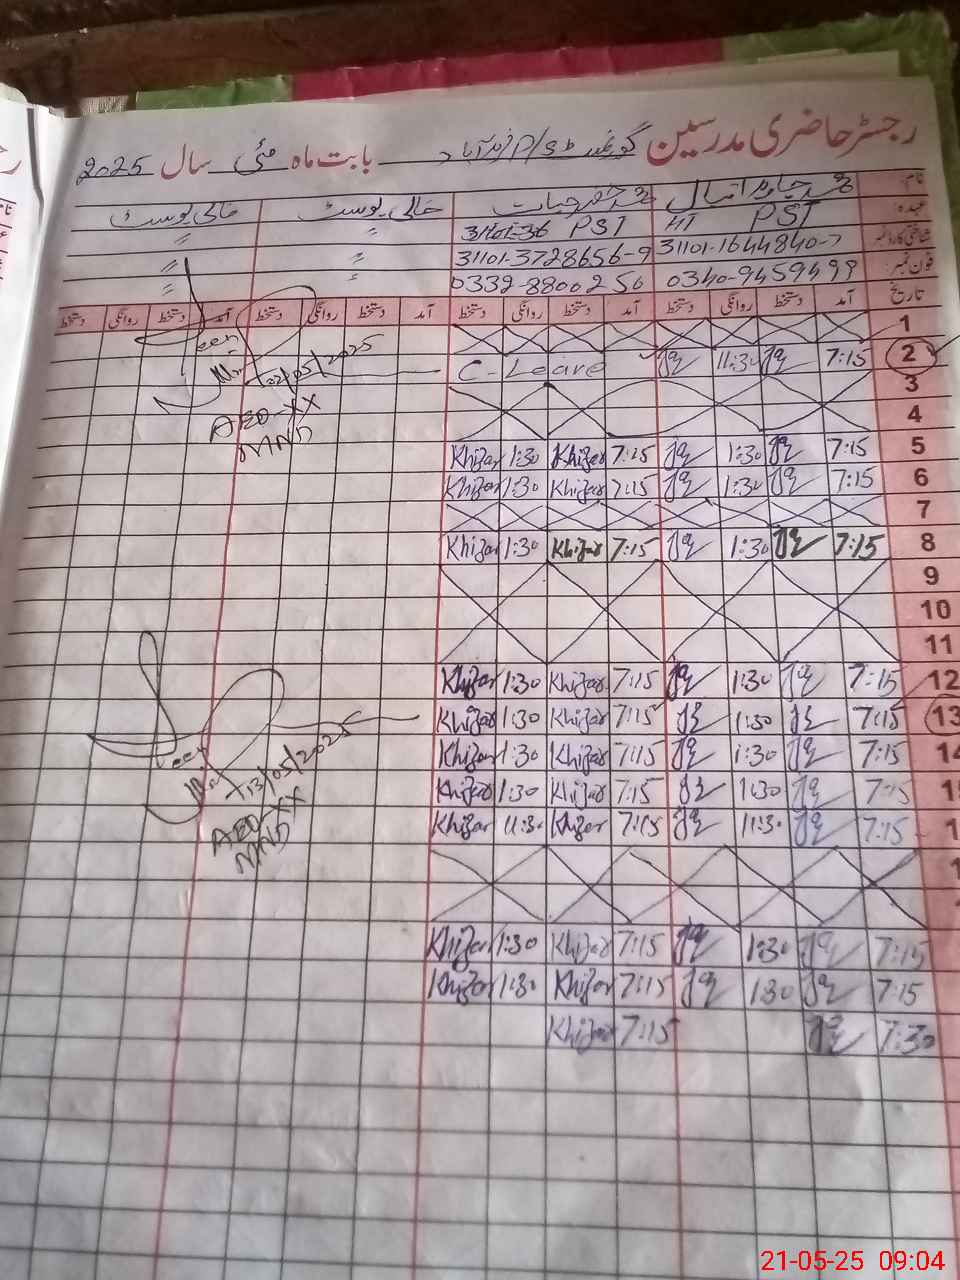 رجسٹر حاضری مدرسین گورنمنٹ P/S فرید آباد بابت ماہ مئی سال 2025
نام: محمد جاوید اقبال محمد خضر حیات خالی پوسٹ خالی پوسٹ
عہدہ: HT PST 31101-36 PST " "
شناختی کارڈ نمبر 31101-1644840-7 31101-3728656-9 " "
فون نمبر: 0340-9459499 0339-8800256 " "
تاریخ آمد دستخط روانگی دستخط آمد دستخط روانگی دستخط آمد دستخط روانگی دستخط آمد دستخط روانگی دستخط
1
2 7:15 11:30 C-Leave
3
4
5 7:15 1:30 7:15 Khizar 1:30 Khizar
6 7:15 1:30 7:15 Khizar 1:30 Khizar
7
8 7:15 1:30 7:15 Khizar 1:30 Khizar
9
10
11
12 7:15 1:30 7:15 Khizar 1:30 Khizar
13 7:15 1:30 7:15 Khizar 1:30 Khizar
14 7:15 1:30 7:15 Khizar 1:30 Khizar
7:15 1:30 7:15 Khizar 1:30 Khizar
7:15 11:30 7:15 Khizar 11:30 Khizar
7:15 1:30 7:15 Khizar 1:30 Khizar
7:15 1:30 7:15 Khizar 1:30 Khizar
7:30 7:15 Khizar
Seen
02/05/2025
AEO-XX
MND
Seen
13/05/2025
AEO-XX
MND
21-05-25 09:04